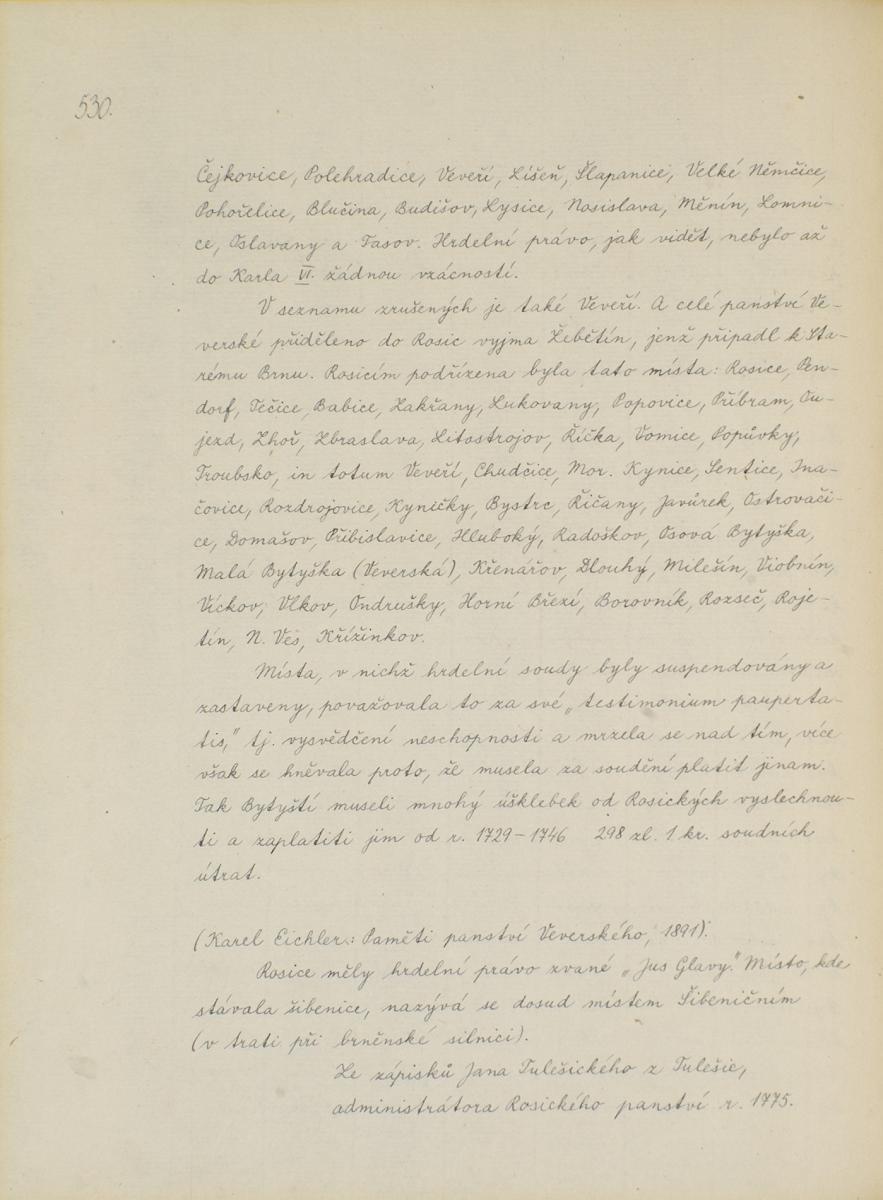 530.
Čejkovice, Polehradice, Veveří, Líšeň, Šlapanice, Velké Němčice,
Pohořelice, Blučina, Budišov, Lysice, Nosislava, Měnín, Lomni-
ce, Oslavany a Tasov. Hrdelní právo, jak vidět, nebylo až
do Karla VI. žádnou vzácností.
V seznamu zrušených je také Veveří. A celé panství Ve-
verské přiděleno do Rosic vyjma Žebětín, jenž připadl k Sta-
rému Brnu. Rosicím podřízena byla tato místa: Rosice, Pen-
dorf, Tečice, Babice, Zakřany, Lukovany, Popovice, Příbram, Ou-
jezd, Zhoř, Zbraslava, Litostrojov, Říčka, Vomice, Popůvky,
Troubsko, in totum Veveří, Chudčice, Mor. Kynice, Sentice, Ina-
čovice, Rozdrojovice, Kyničky, Bystrc, Říčany, Javůrek, Ostrovači-
ce, Domašov, Přibislavice, Hluboký, Radoškov, Osová Bytyška,
Malá Bytyška (Veverská), Křenářov, Dlouhý, Milešín, Viobnín,
Víckov, Vlkov, Ondrušky, Horní Březí, Borovník, Rozseč, Roje-
tín, N. Ves, Křížinkov.
Místa, v nichž hrdelní soudy byly suspendovány a
zastaveny, považovala to za své „testimonium pauperta-
tis," tj. vysvědčení neschopnosti a mrzela se nad tím, více
však se hněvala proto, že musela za soudění platit jinam.
Tak Bytyští museli mnohý úšklebek od Rosických vyslechnou-
ti a zaplatiti jim od r. 1729 – 1746 298 zl. 1 kr. soudních
útrat.
(Karel Eichler: Paměti panství Veverského, 1891).
Rosice měly hrdelní právo zvané „Jus Glavy." Místo, kde
stávala šibenice, nazývá se dosud místem Šibeničním
(v trati při brněnské silnici).
Ze zápisků Jana Tulešického z Tulešic,
administrátora Rosického panství r. 1775.